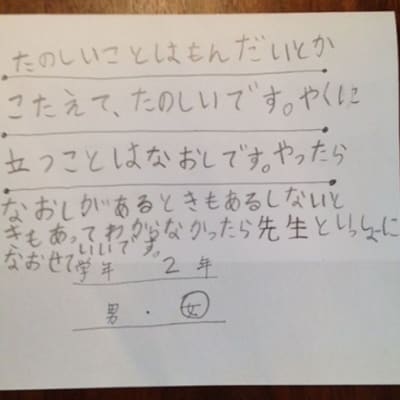 たのしいことはもんだいとか
こたえて、たのしいです。やくに
立つことはなおしです。やったら
なおしがあるときもあるしないと
きもあってわからなかったら先生といっしょに
なおせていいです。
学年 2 年
男 ・ 女